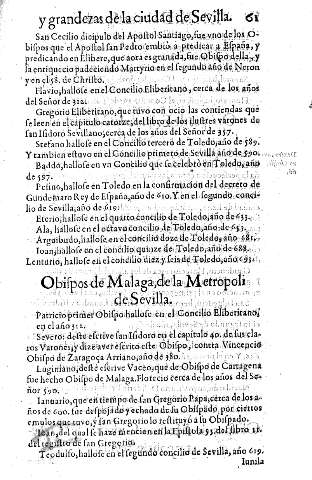 y grandezas de la ciudad de Sevilla. 61
San Cecilio dicipulo del Apostol Santiago, fue vno de los O-
bispos que el Apostol san Pedro embiò a predicar a España, y
predicando en Elibere, que aora es granada, fue Obispo della, y
la enriquecio padeciendo Martyrio en el segundo año de Neron
y en el 58. de Christo.
Flavio, hallose en el Concilio Eliberitano, cerca de los años
del Señor de 312.
Gregorio Eliberitano, que tuvo con ocio las contiendas que
se leen en el capitulo catorze, del libro de los ilustres varones de
san Isidoro Sevillano; cerca de los años del Señor de 357.
Stefano hallose en el Concilio tercero de Toledo, año de 589.
Y tambien estuvo en el Concilio primero de Sevilla año de 590.
Baddo, hallose en vn Concilio que se celebrò en Toledo, año
de 597.
Pefino, hallose en Toledo en la confirmacion del decreto de
Gundemaro Rey de España, año de 610. Y en el segundo conci-
lio de Sevilla, año de 619.
Eterio, hallose en el quarto concilio de Toledo, año de 633.
Ala, hallose en el octava concilio de Toledo, año de 653.
Argibudo, hallose en el concilio doze de Toledo, año 681.
Ioan, hallose en el concilio quinze de Toledo, año de 688.
Lenturio, hallose en el concilio diez y seis de Toledo, año 693.
Obispos de Malaga, de la Metropoli
de Sevilla.
Patricio primer Obispo hallose en el Concilio Eliberitano,
en el año 312.
Severo, deste escrive san Isidoro en el capitulo 40. de sus cla-
ros Varones, y dize aver escrito este Obispo, contra Vincencio
Obispo de Zaragoça Arriano, año de 580.
Luginiano, deste escrive Vaceo, que de Obispo de Cartagena
fue hecho Obispo de Malaga. Florecio cerca de los años del Se-
ñor 590.
Ianuario, que en tiempo de san Gregorio Papa, cerca de los a-
ños de 600. fue despojado y echado de su Obispado por ciertos
emulos que tuvo, y san Gregorio lo restituyò a su Obispado.
Ioan, del qual se haze mencion en la Epistola 53. del libro 11.
del registro de san Gregorio.
Teodulfo, hallose en el segundo concilio de Sevilla, año 619.
Iunila